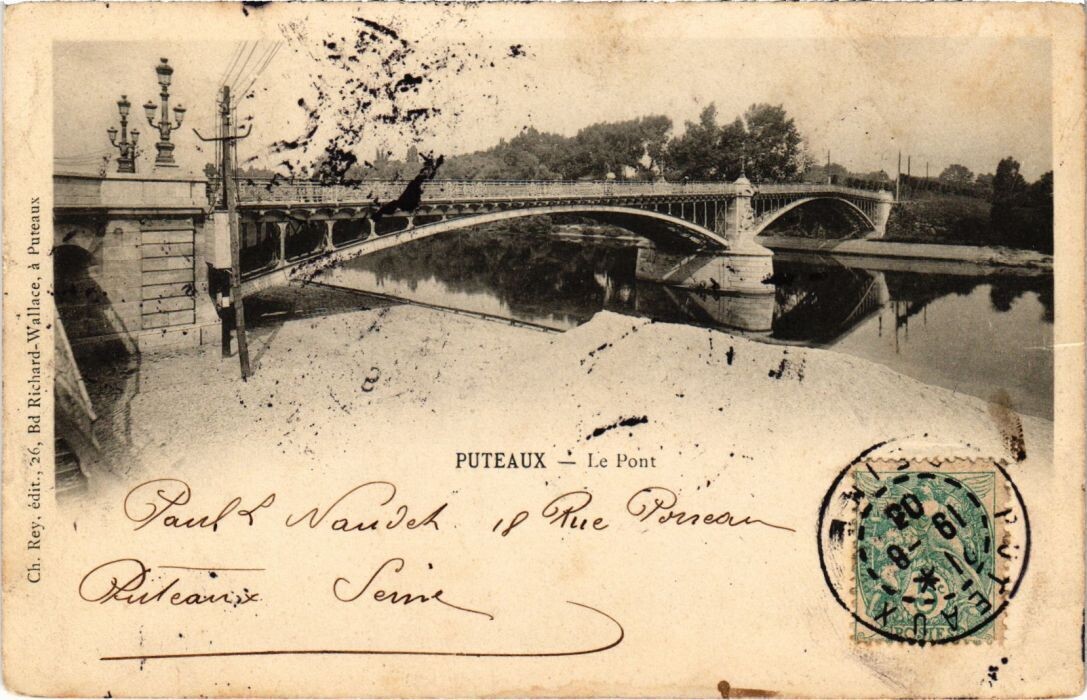 Ch. Rey, édit., 26, Bd Richard-Wallace, à Puteaux
PUTEAUX — Le Pont
Paul Naudet 18 Rue Poireau
Puteaux Seine
PUTEAUX
SEINE
19 -8
03
5c
POSTES